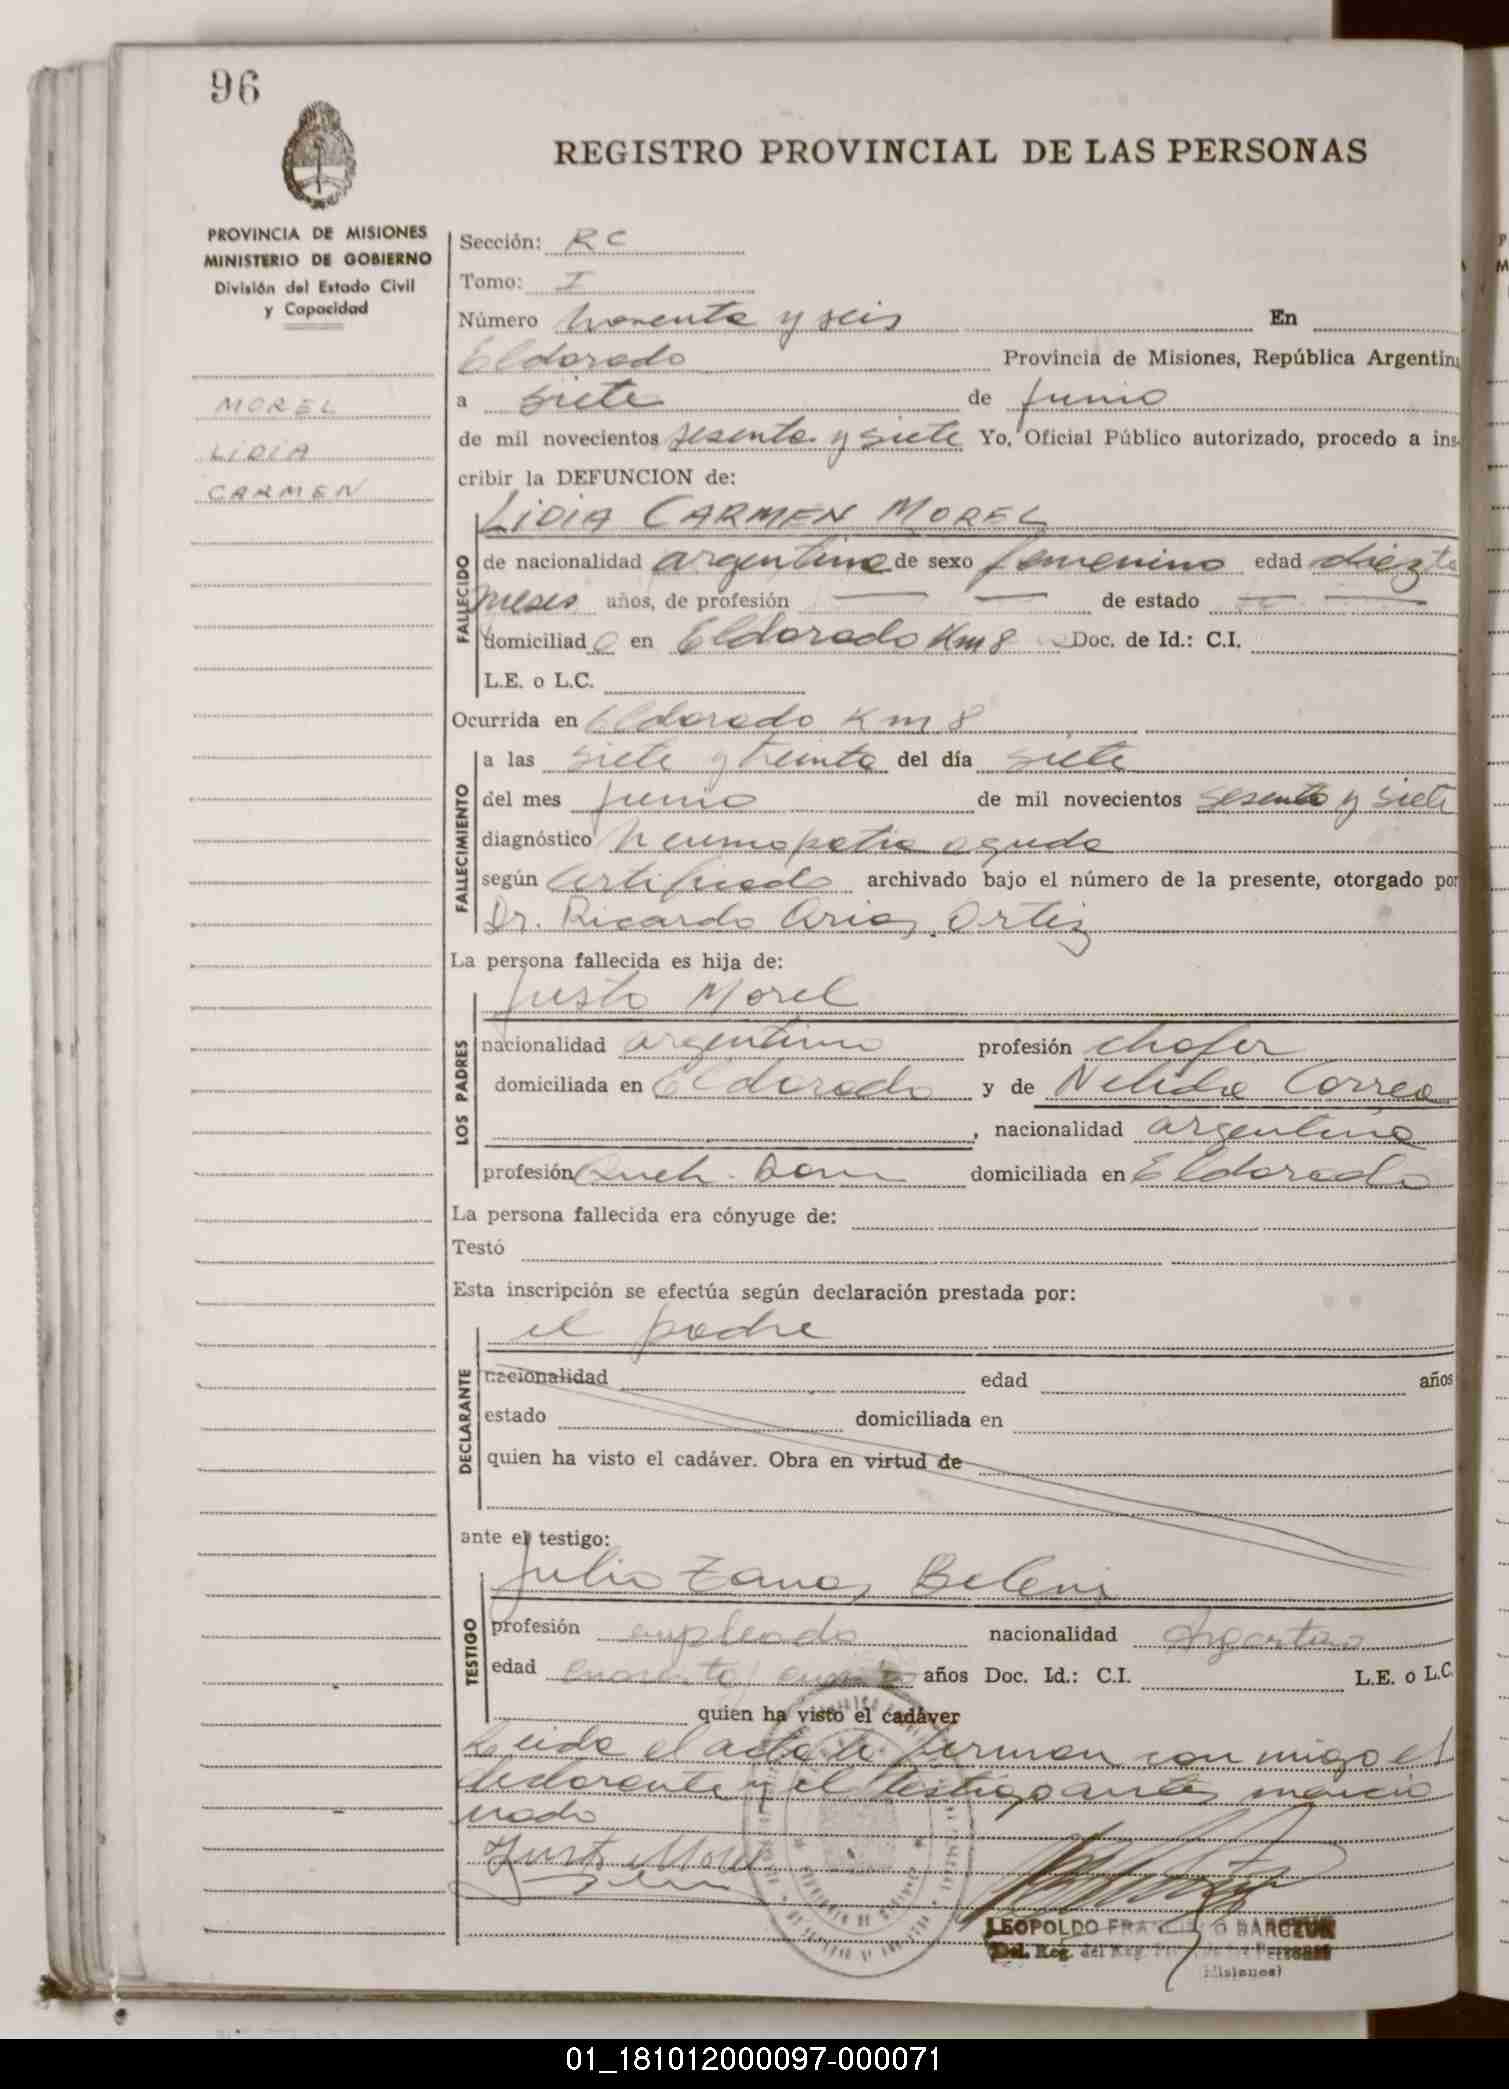 96
REGISTRO PROVINCIAL DE LAS PERSONAS
PROVINCIA DE MISIONES
MINISTERIO DE GOBIERNO
División del Estado Civil
y Capacidad
MOREL
LIDIA
CARMEN
Sección: RC
Tomo: I
Número noventa y seis En
Eldorado Provincia de Misiones, República Argentin
a siete de junio
de mil novecientos sesenta y siete Yo, Oficial Público autorizado, procedo a ins-
cribir la DEFUNCION de:
LIDIA CARMEN MOREL
FALLECIDO
de nacionalidad argentina de sexo femenino edad diez
meses años, de profesión — — de estado — —
domiciliad o en Eldorado Km 8 Doc. de Id.: C.I.
L.E. o L.C.
Ocurrida en Eldorado Km 8
FALLECIMIENTO
a las siete y treinta del día siete
del mes junio de mil novecientos sesenta y siete
diagnóstico neumopatia aguda
según Certificado archivado bajo el número de la presente, otorgado por
Dr. Ricardo Arias Ortiz
La persona fallecida es hija de:
LOS PADRES
Justo Morel
nacionalidad argentino profesión chofer
domiciliada en Eldorado y de Nelida Correa
, nacionalidad argentina
profesión Queh. Dom domiciliada en Eldorado
La persona fallecida era cónyuge de:
Testó
Esta inscripción se efectúa según declaración prestada por:
DECLARANTE
el padre
nacionalidad edad años
estado domiciliada en
quien ha visto el cadáver. Obra en virtud de
ante el testigo:
TESTIGO
Julio
profesión empleado nacionalidad Argentino
edad años Doc. Id.: C.I. L.E. o L.C.
quien ha visto el cadáver
Leida el acta la firman con migo el
declarante y el testigo antes mencio
nado
Justo Morel
LEOPOLDO FRANCISCO BARCZUN
Del. Reg. del Reg. Prov. de las Personas
(Misiones)
01_181012000097-000071